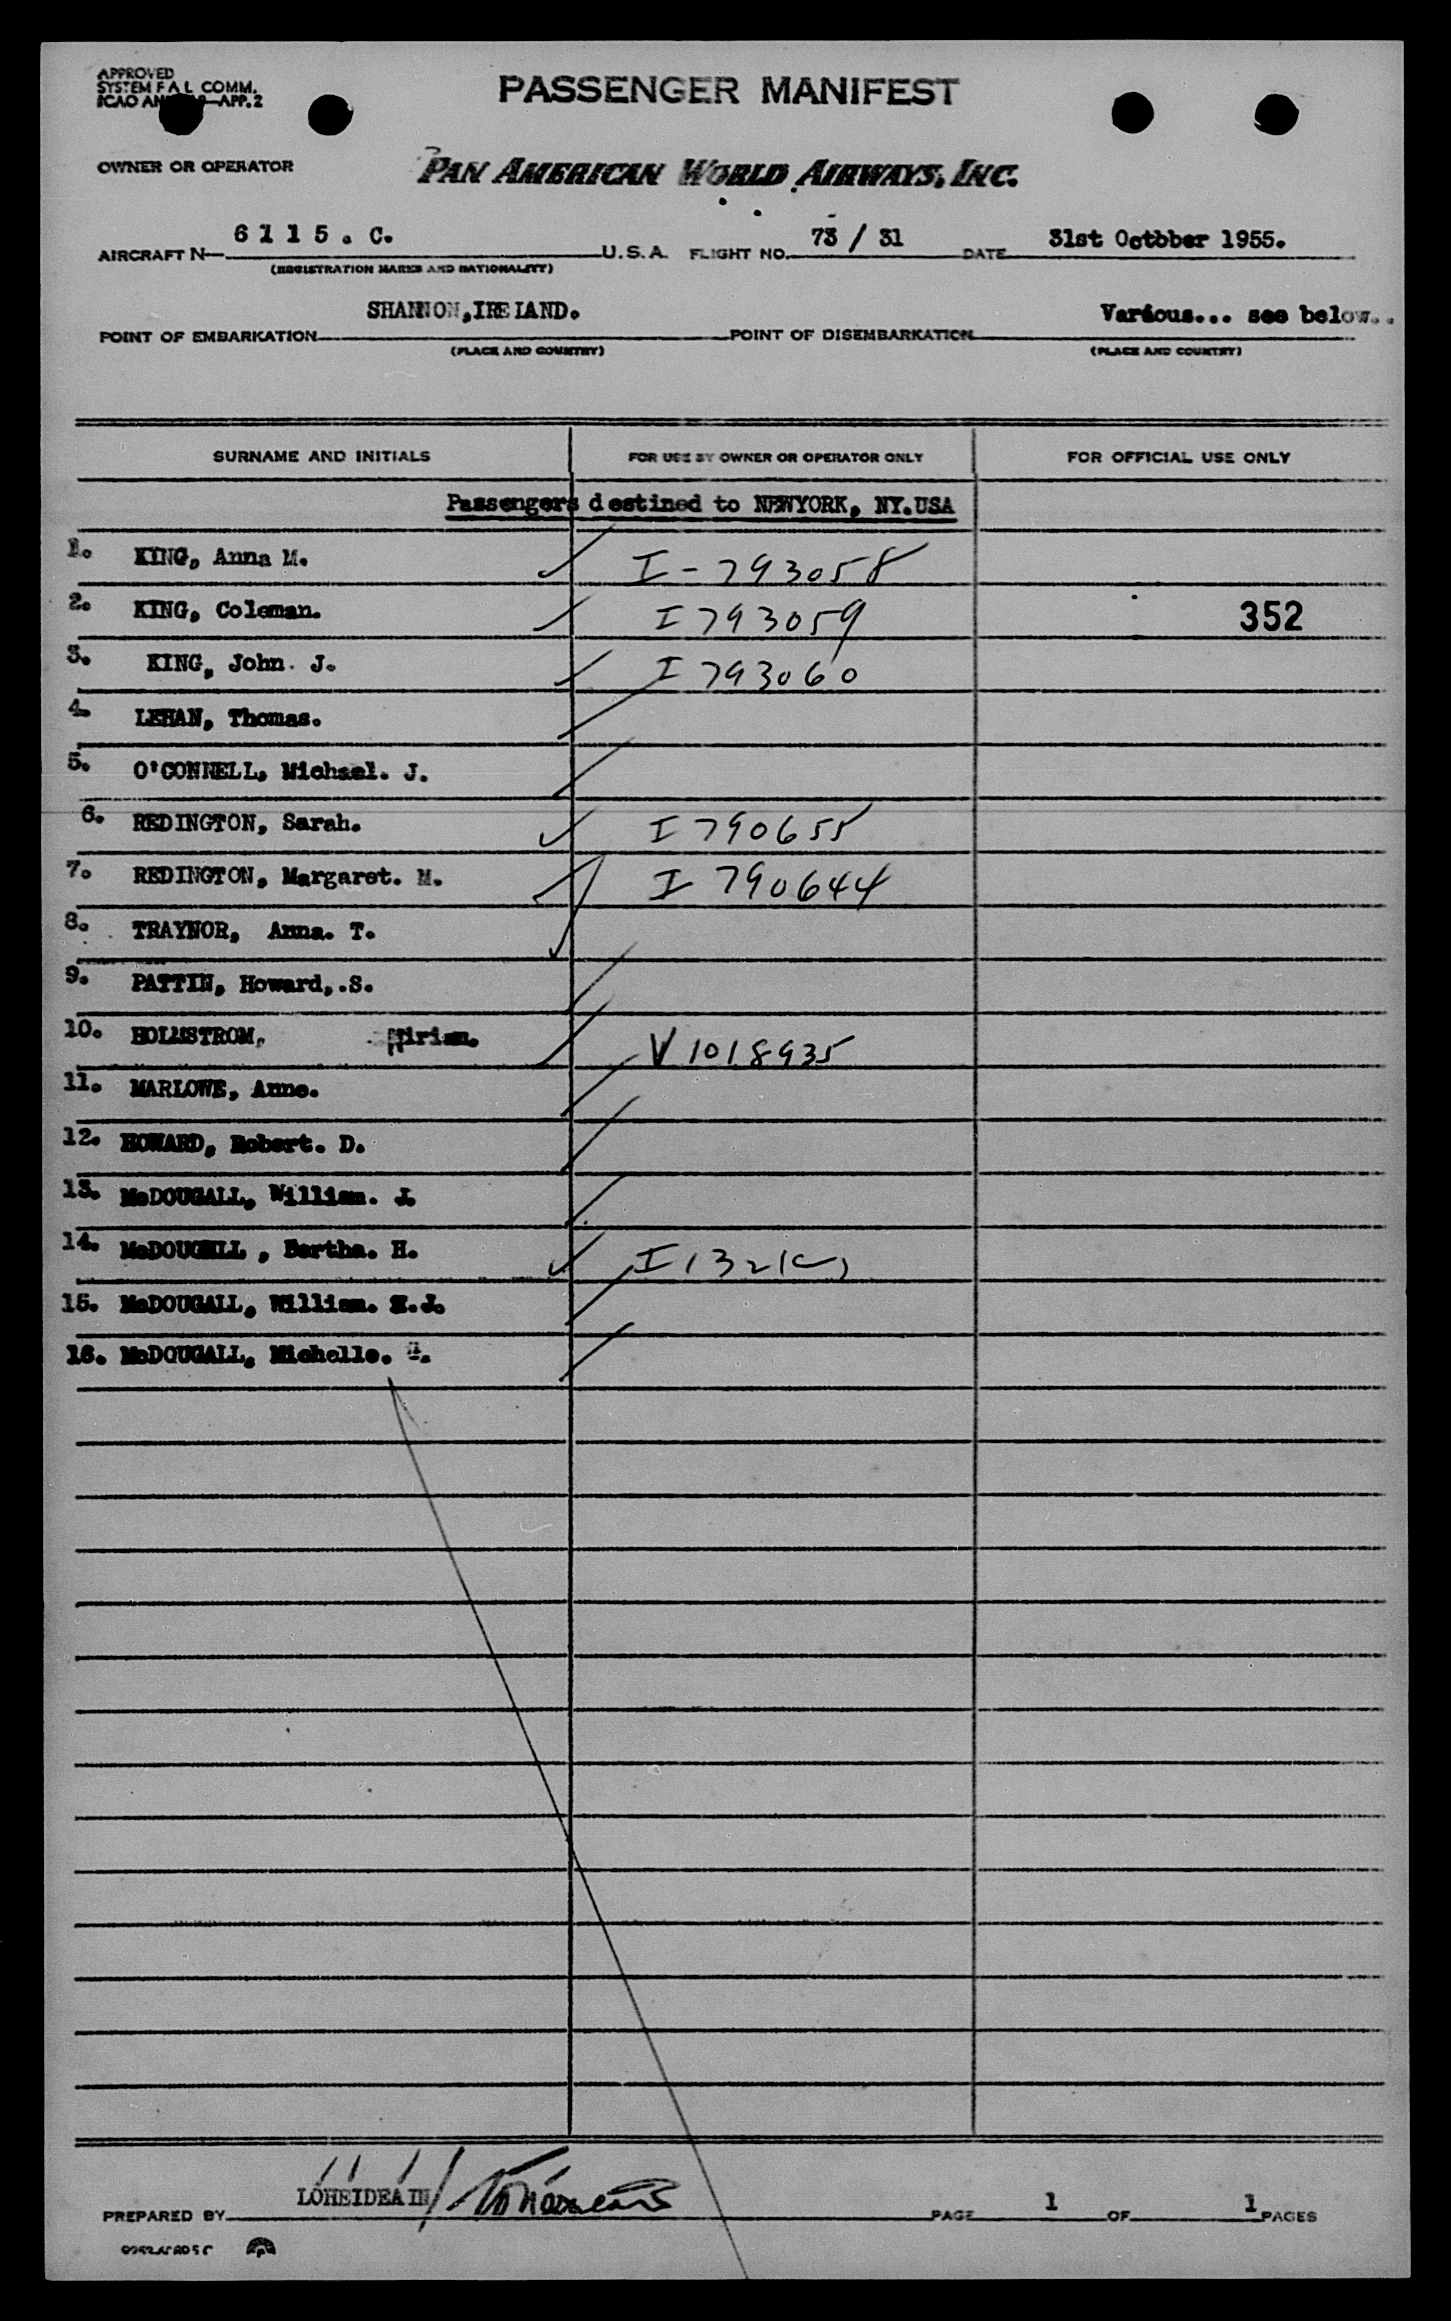 APPROVED
SYSTEM F A L COMM.
ICAO APP. 2
PASSENGER MANIFEST
OWNER OR OPERATOR
PAN AMERICAN WORLD AIRWAYS, INC.
AIRCRAFT N— 6 1 1 5 . C. U.S.A. FLIGHT NO. 73 / 31 DATE 31st Octbber 1955.
(REGISTRATION MARKS AND NATIONALITY)
POINT OF EMBARKATION SHANNON,IRELAND. POINT OF DISEMBARKATION Various... see below..
(PLACE AND COUNTRY) (PLACE AND COUNTRY)
SURNAME AND INITIALS FOR USE BY OWNER OR OPERATOR ONLY FOR OFFICIAL USE ONLY
Passengers destined to NEWYORK, NY.USA
1. KING, Anna M. I-793058
2. KING, Coleman. I 793059 352
3. KING, John. J. I 793060
4. LEHAN, Thomas.
5. O'CONNELL, Michael. J.
6. REDINGTON, Sarah. I 790655
7. REDINGTON, Margaret. M. I 790644
8. TRAYNOR, Anna. T.
9. PATTIN, Howard,.S.
10. HOLMSTROM, Mirian. V 1018935
11. MARLOWE, Anne.
12. HOWARD, Robert. D.
13. McDOUGALL, William. J.
14. McDOUGELL , Bertha. H.
15. McDOUGALL, William. H.J.
16. McDOUGALL, Michelle.
PREPARED BY LOHEIDEAIN PAGE 1 OF 1 PAGES